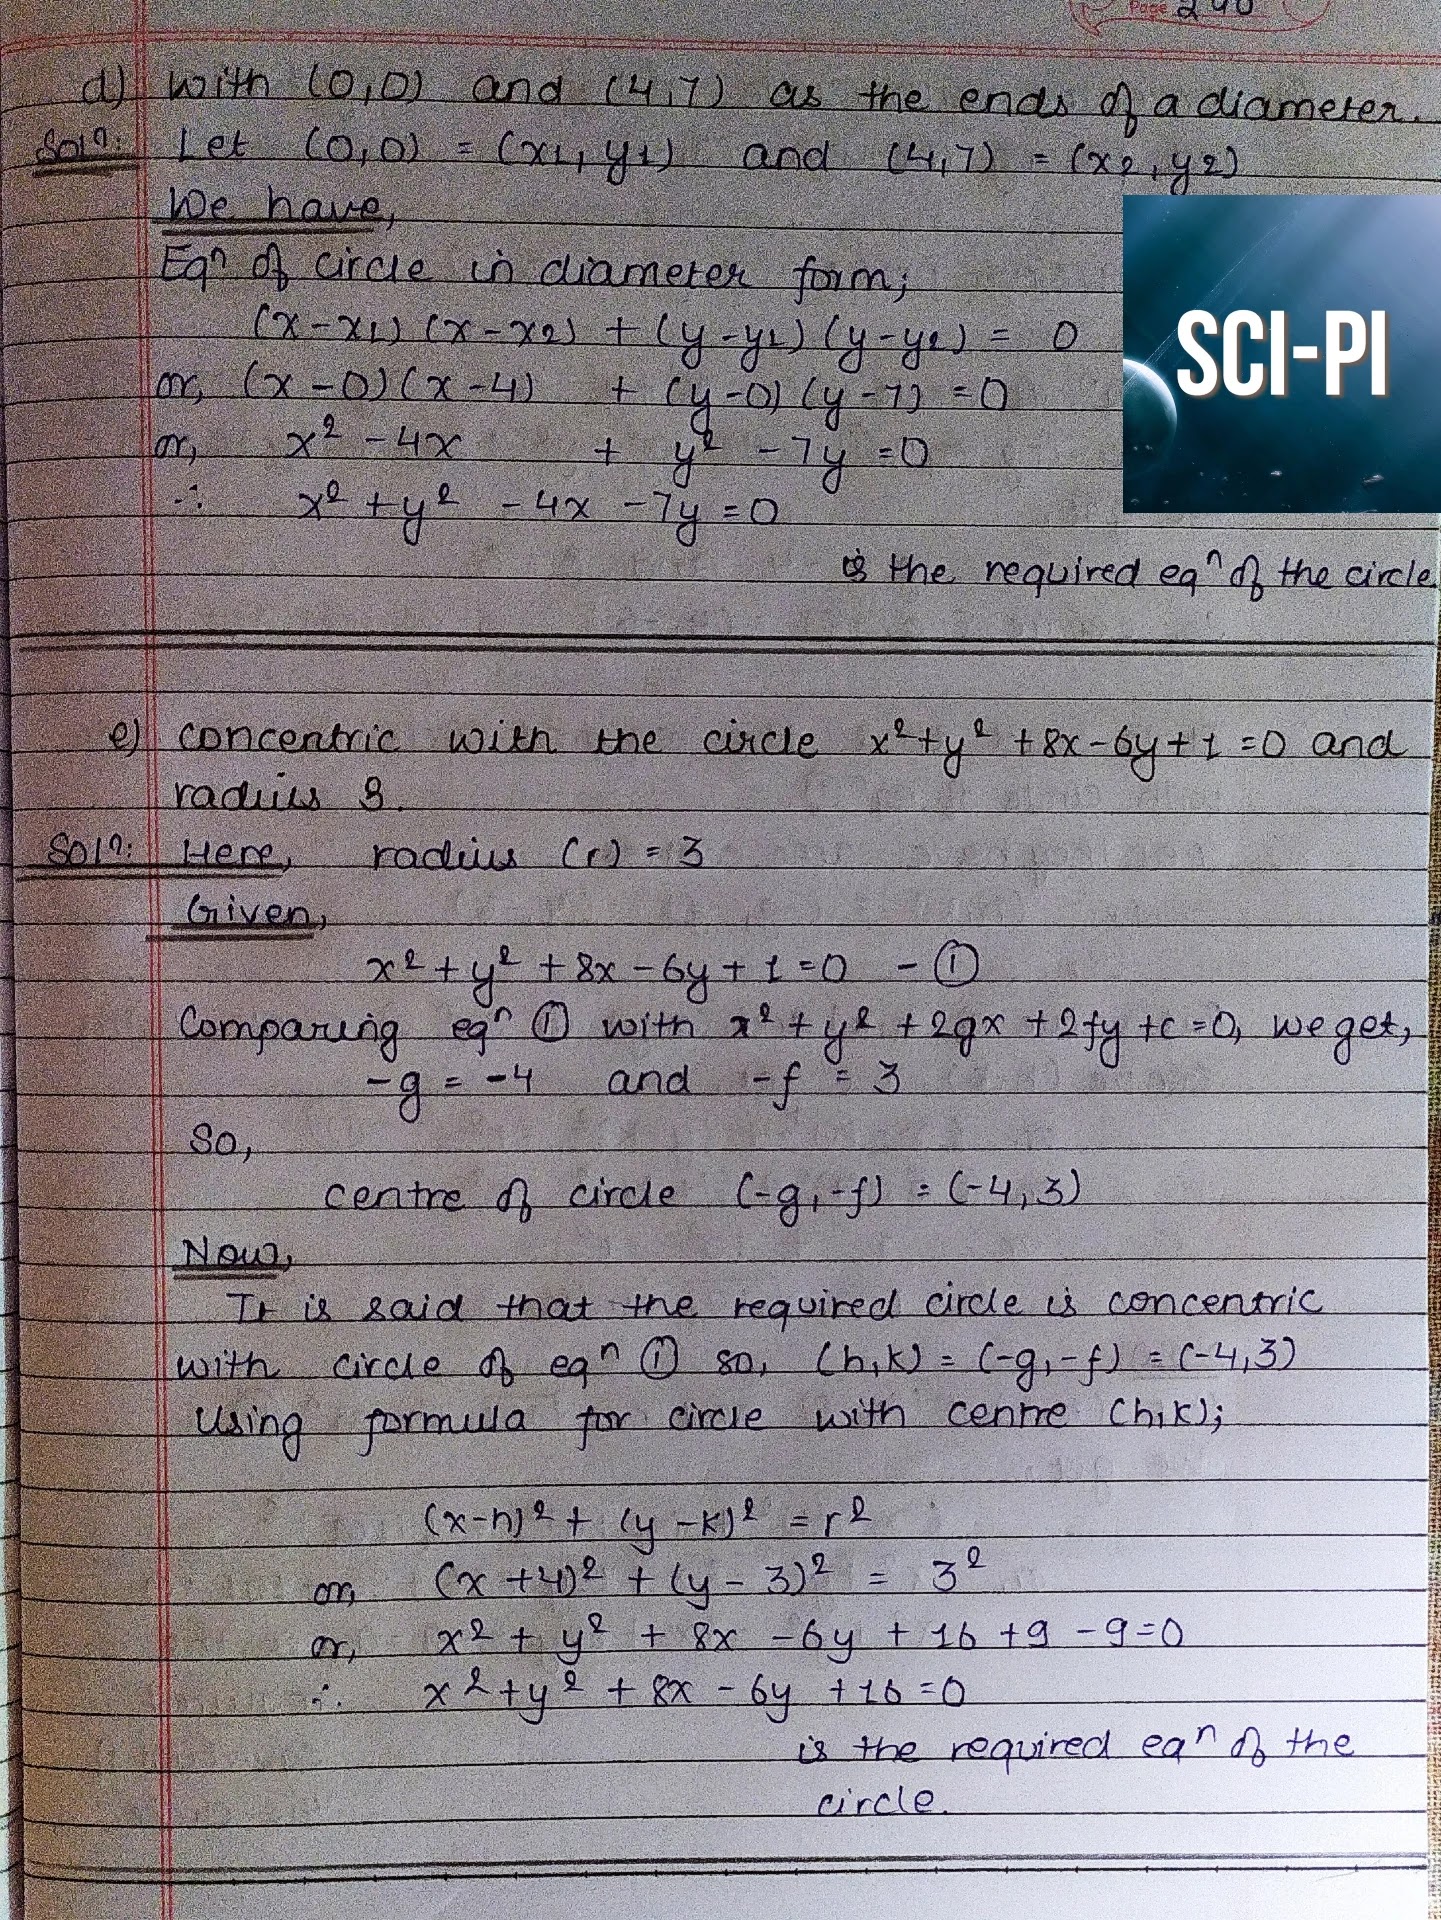 Page 240
d) with (0,0) and (4,7) as the ends of a diameter.
Solⁿ: Let (0,0) = (x1, y1) and (4,7) = (x2, y2)
We have,
Eqⁿ of circle in diameter form;
(x-x1)(x-x2) + (y-y1)(y-y2) = 0
or, (x-0)(x-4) + (y-0)(y-7) = 0
or, x² - 4x + y² - 7y = 0
∴ x² + y² - 4x - 7y = 0
is the required eqⁿ of the circle
SCI-PI
e) concentric with the circle x²+y²+8x-6y+1=0 and
radius 3.
Solⁿ: Here, radius (r) = 3
Given,
x²+y²+8x-6y+1=0 - ①
Comparing eqⁿ ① with x²+y²+2gx+2fy+c=0, we get,
-g = -4 and -f = 3
So,
centre of circle (-g,-f) = (-4,3)
Now,
It is said that the required circle is concentric
with circle of eqⁿ ① so, (h,k) = (-g,-f) = (-4,3)
Using formula for circle with centre (h,k);
(x-h)² + (y-k)² = r²
or, (x+4)² + (y-3)² = 3²
or, x² + y² + 8x - 6y + 16 + 9 - 9 = 0
∴ x²+y² + 8x - 6y + 16 = 0
is the required eqⁿ of the
circle.